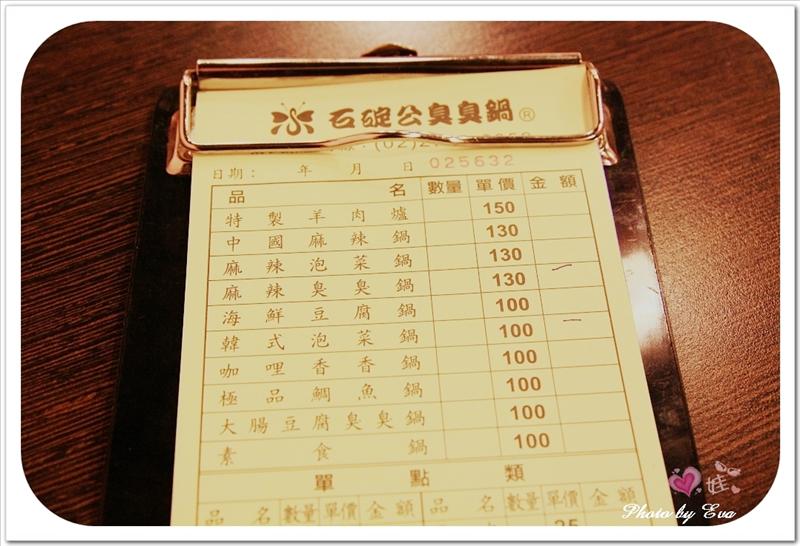 石碇公臭臭鍋®
(02)2
日期： 年 月 日 025632
品名 數量 單價 金額
特製羊肉爐 150
中國麻辣鍋 130
麻辣泡菜鍋 130
麻辣臭臭鍋 130
海鮮豆腐鍋 100
韓式泡菜鍋 100
咖哩香香鍋 100
極品鯛魚鍋 100
大腸豆腐臭臭鍋 100
素食鍋 100
單點類
品名 數量 單價 金額 品名 數量 單價 金額
25
娃
Photo by Eva